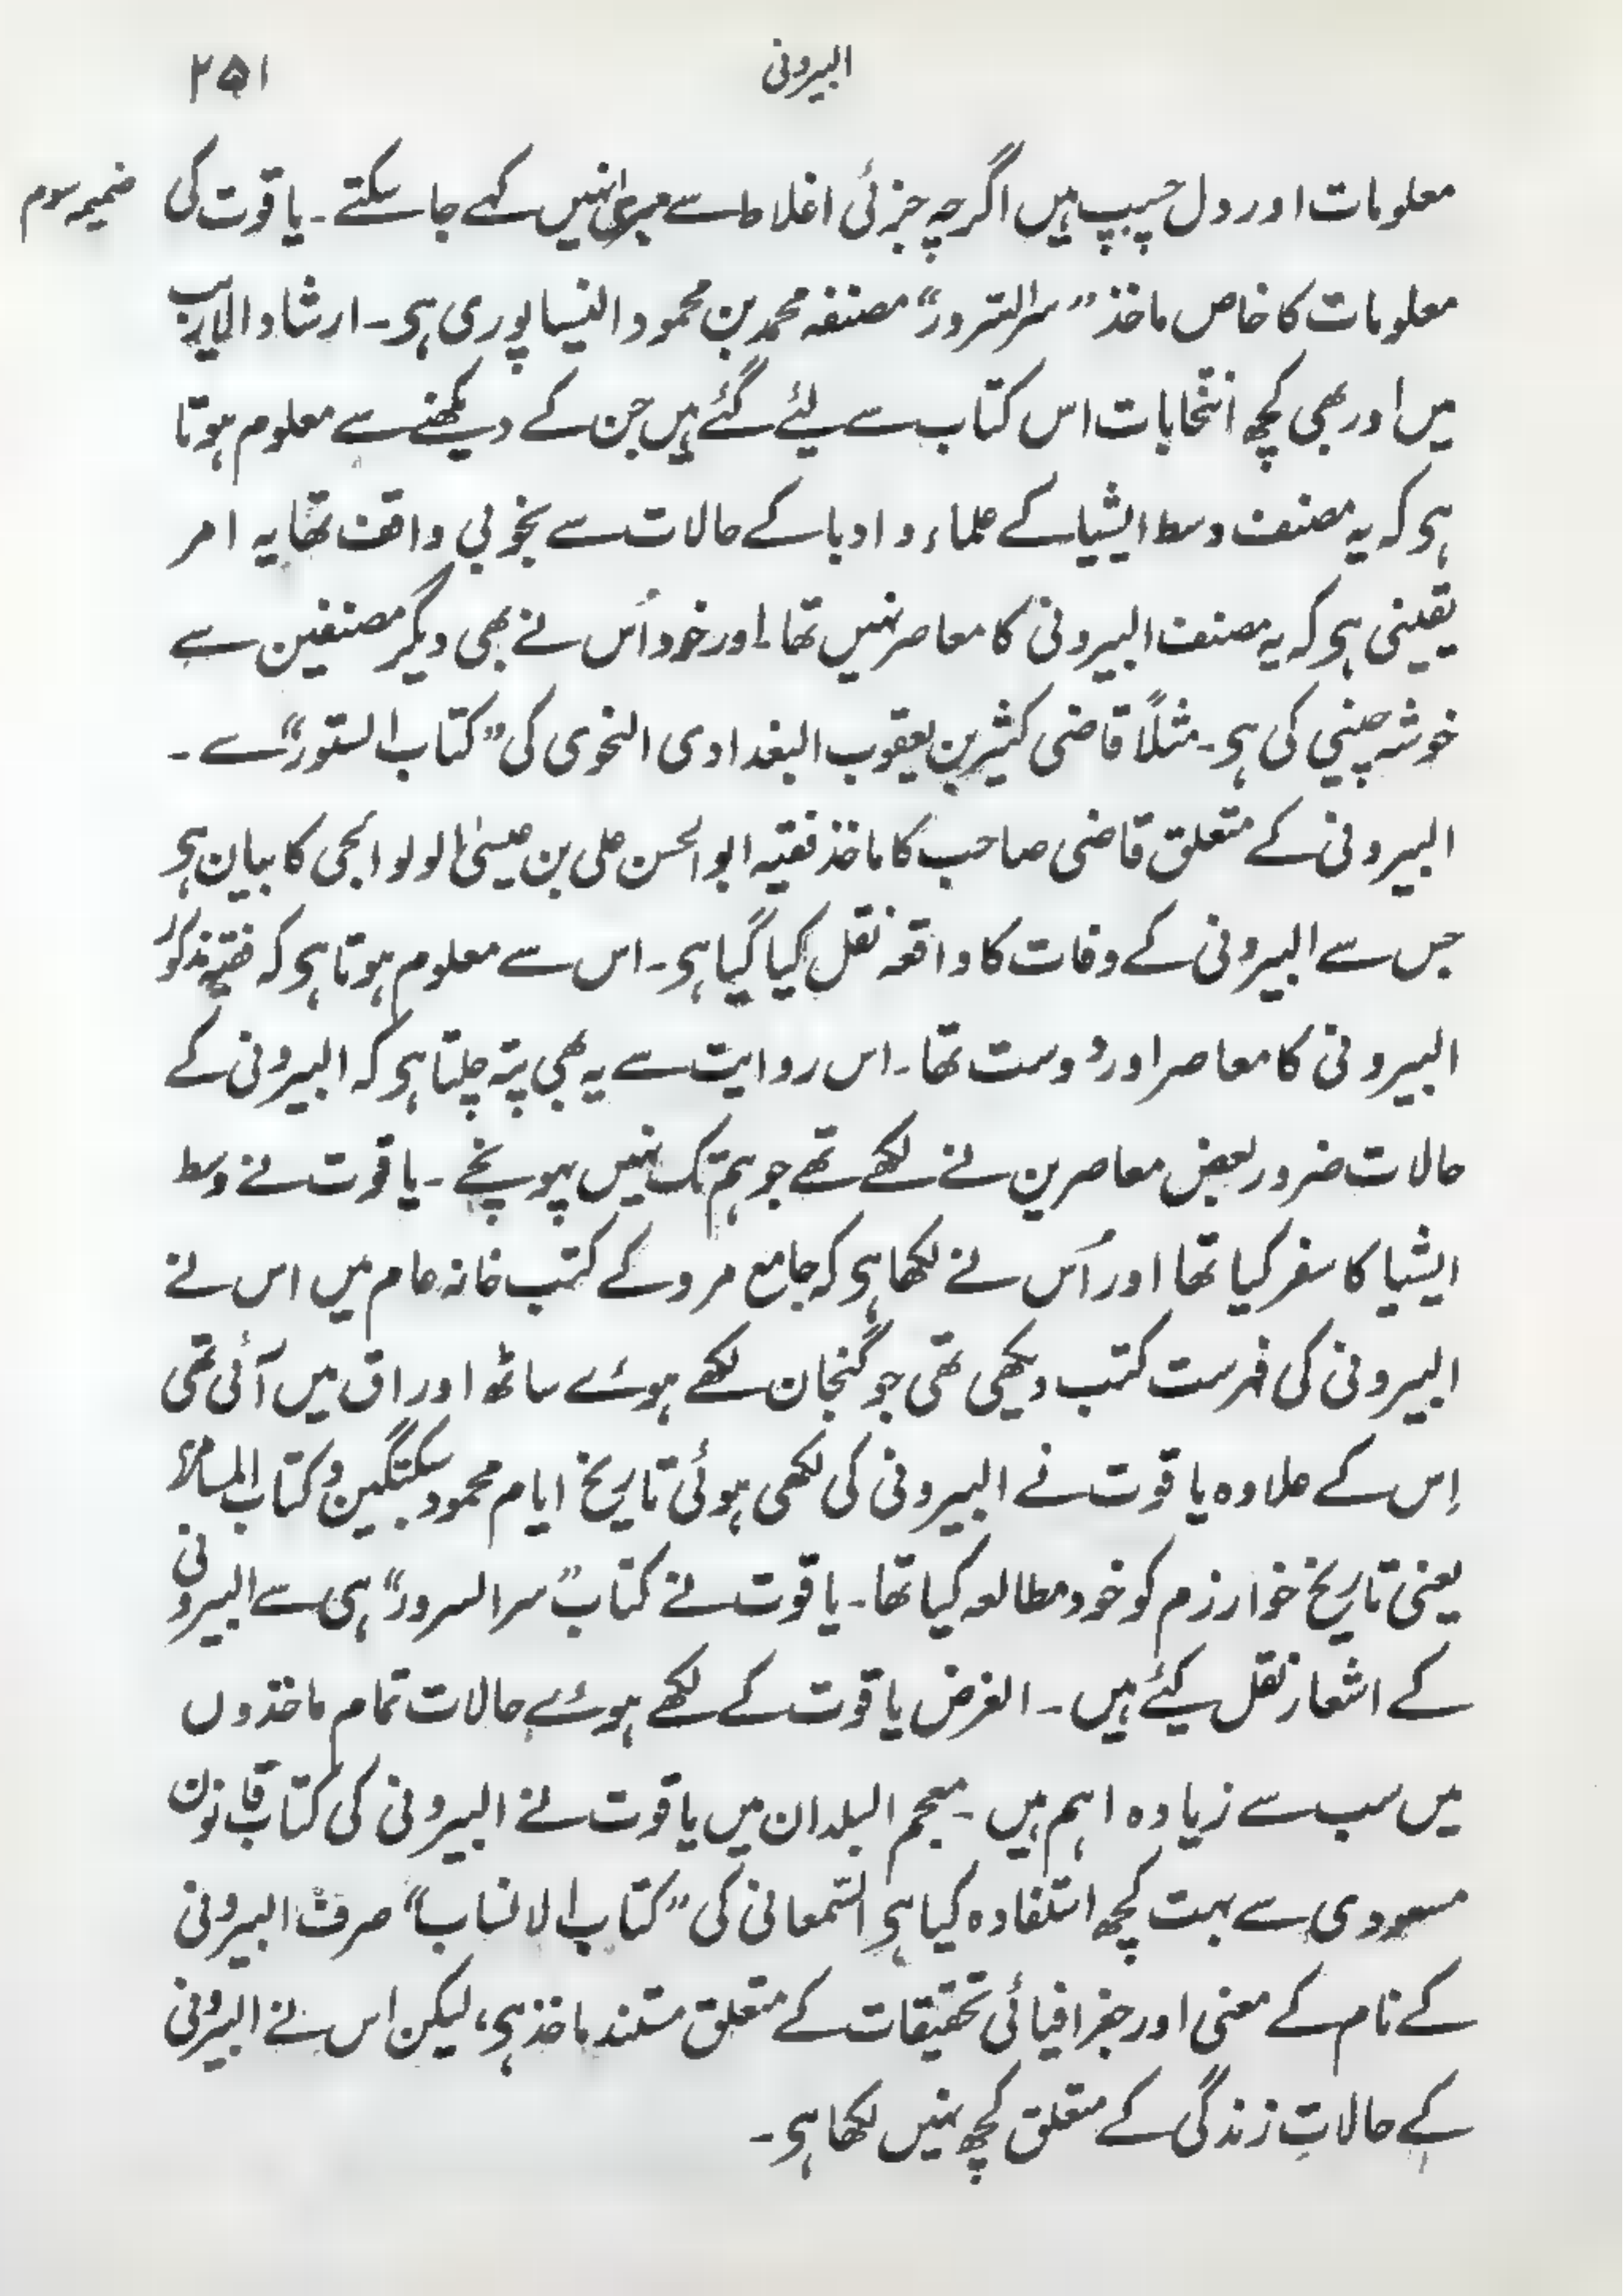 البیرونی ۲۵۱
معلومات اور دل چسپ ہیں اگرچہ جزئی اغلاط سے مبرّیٰ نہیں کہے جا سکتے ۔ یاقوت کی ضمیمہ سوم
معلومات کا خاص ماخذ ”سر السّرور“ مصنفہ محمد بن محمود النیساپوری ہی ۔ ارشاد الاریب
میں اور بھی کچھ انتخابات اس کتاب سے لیئے گئے ہیں جن کے دیکھنے سے معلوم ہوتا
ہی کہ یہ مصنف وسط ایشیا کے علماء و ادبا کے حالات سے بخوبی واقف تھا یہ امر
یقینی ہی کہ یہ مصنف البیرونی کا معاصر نہیں تھا۔ اور خود اُس نے بھی دیگر مصنفین سے
خوشہ چینی کی ہی ۔ مثلاً قاضی کثیر بن یعقوب البغدادی النحوی کی ”کتاب الستور“ سے ۔
البیرونی کے متعلق قاضی صاحب کا ماخذ فقیہ ابوالحسن علی بن عیسیٰ الولوالجی کا بیان ہی
جس سے البیرونی کے وفات کا واقعہ نقل کیا گیا ہی ۔ اس سے معلوم ہوتا ہی کہ فقیہ مذکور
البیرونی کا معاصر اور دوست تھا ۔ اس روایت سے یہ بھی پتہ چلتا ہی کہ البیرونی کے
حالات ضرور بعض معاصرین نے لکھے تھے جو ہم تک نہیں پہونچے ۔ یاقوت نے وسط
ایشیا کا سفر کیا تھا اور اُس نے لکھا ہی کہ جامع مرو کے کتب خانہ عام میں اس نے
البیرونی کی فہرست کتب دیکھی تھی جو گنجان لکھے ہوئے ساٹھ اوراق میں آئی تھی
اِس کے علاوہ یاقوت نے البیرونی کی لکھی ہوئی تاریخ ایام محمود سبکتگین و کتاب المسامرۃ
یعنی تاریخ خوارزم کو خود مطالعہ کیا تھا ۔ یاقوت نے کتاب ”سر السرور“ ہی سے البیرونی
کے اشعار نقل کیئے ہیں ۔ الغرض یاقوت کے لکھے ہوئے حالات تمام ماخذوں
میں سب سے زیادہ اہم ہیں ۔ معجم البلدان میں یاقوت نے البیرونی کی کتاب قانون
مسعودی سے بہت کچھ استفادہ کیا ہی السّمعانی کی ”کتاب الانساب“ صرف البیرونی
کے نام کے معنی اور جغرافیائی تحقیقات کے متعلق مستند ماخذ ہی، لیکن اس نے البیرونی
کے حالاتِ زندگی کے متعلق کچھ نہیں لکھا ہی ۔